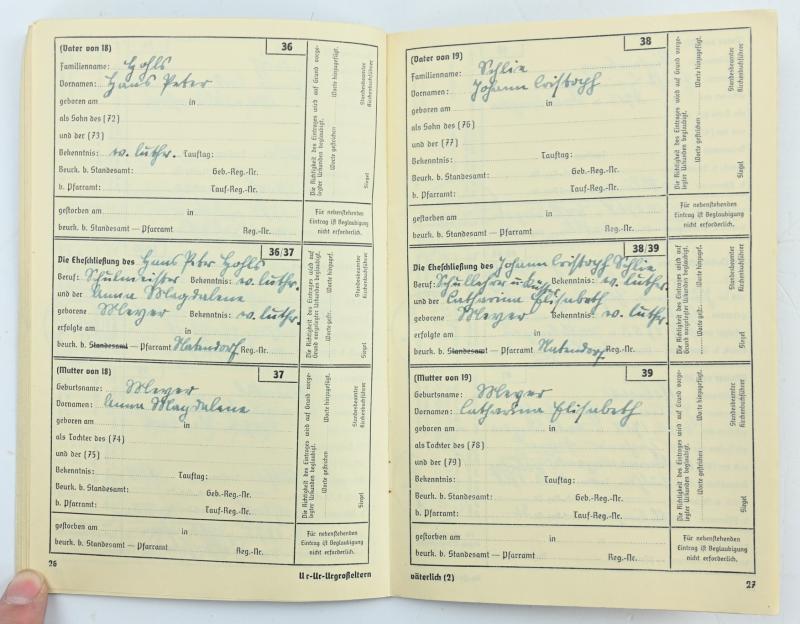 (Vater von 18) 36
Familienname: Hohls
Vornamen: Hans Peter
geboren am in
als Sohn des (72)
und der (73)
Bekenntnis: ev. luther. Tauftag:
Beurk. b. Standesamt: Geb.-Reg.-Nr.
b. Pfarramt: Tauf-Reg.-Nr.
gestorben am in
beurk. b. Standesamt — Pfarramt Reg.-Nr.
Die Richtigkeit des Eintrages wird auf Grund vorge-
legter Urkunden beglaubigt.
Worte gestrichen Worte hinzugefügt.
Siegel Standesbeamter
Kirchenbuchführer
Für nebenstehenden
Eintrag ist Beglaubigung
nicht erforderlich.
36/37
Die Eheschließung des Hans Peter Hohls
Beruf: Schulmeister Bekenntnis: ev. luther.
und der Anna Magdalene
geborene Meyer Bekenntnis: ev. luthr.
erfolgte am in
beurk. b. Standesamt — Pfarramt Natendorf Reg.-Nr.
(Mutter von 18) 37
Geburtsname: Meyer
Vornamen: Anna Magdalene
geboren am in
als Tochter des (74)
und der (75)
Bekenntnis: Tauftag:
Beurk. b. Standesamt: Geb.-Reg.-Nr.
b. Pfarramt: Tauf-Reg.-Nr.
gestorben am in
beurk. b. Standesamt — Pfarramt Reg.-Nr.
Die Richtigkeit des Eintrages wird auf Grund vorge-
legter Urkunden beglaubigt.
Worte gestrichen Worte hinzugefügt.
Siegel Standesbeamter
Kirchenbuchführer
Für nebenstehenden
Eintrag ist Beglaubigung
nicht erforderlich.
26
Ur-Ur-Urgroßeltern
(Vater von 19) 38
Familienname: Schlie
Vornamen: Johann Cristoph
geboren am in
als Sohn des (76)
und der (77)
Bekenntnis: Tauftag:
Beurk. b. Standesamt: Geb.-Reg.-Nr.
b. Pfarramt: Tauf-Reg.-Nr.
gestorben am in
beurk. b. Standesamt — Pfarramt Reg.-Nr.
Die Richtigkeit des Eintrages wird auf Grund vorge-
legter Urkunden beglaubigt.
Worte gestrichen Worte hinzugefügt.
Siegel Standesbeamter
Kirchenbuchführer
Für nebenstehenden
Eintrag ist Beglaubigung
nicht erforderlich.
38/39
Die Eheschließung des Johann Cristoph Schlie
Beruf: Schullehrer u. Bekenntnis: ev. luther.
und der Catharina Elisabeth
geborene Meyer Bekenntnis: ev. luthr.
erfolgte am in
beurk. b. Standesamt — Pfarramt Natendorf Reg.-Nr.
(Mutter von 19) 39
Geburtsname: Meyer
Vornamen: Catharina Elisabeth
geboren am in
als Tochter des (78)
und der (79)
Bekenntnis: Tauftag:
Beurk. b. Standesamt: Geb.-Reg.-Nr.
b. Pfarramt: Tauf-Reg.-Nr.
gestorben am in
beurk. b. Standesamt — Pfarramt Reg.-Nr.
Die Richtigkeit des Eintrages wird auf Grund vorge-
legter Urkunden beglaubigt.
Worte gestrichen Worte hinzugefügt.
Siegel Standesbeamter
Kirchenbuchführer
Für nebenstehenden
Eintrag ist Beglaubigung
nicht erforderlich.
väterlich (2)
27